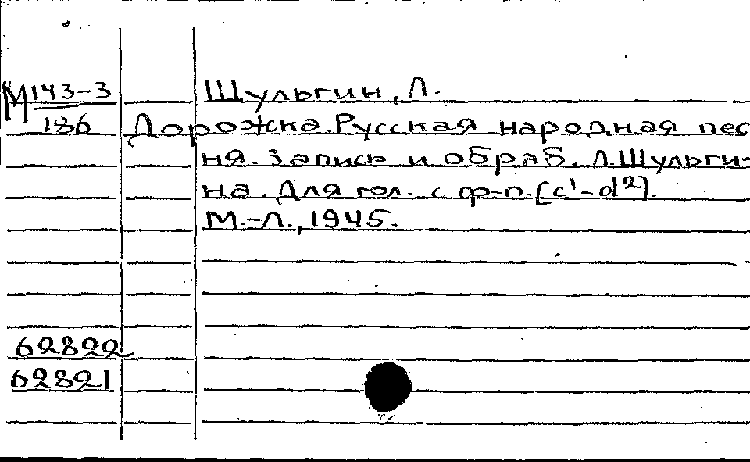 М 143-3
186
Шульгин, Л.
Дорожка. Русская народная пес
ня. Запись и обраб. Л. Шульги-
на. Для гол. с ф-п. [c¹-d²].
М.-Л., 1945.
62822
62821